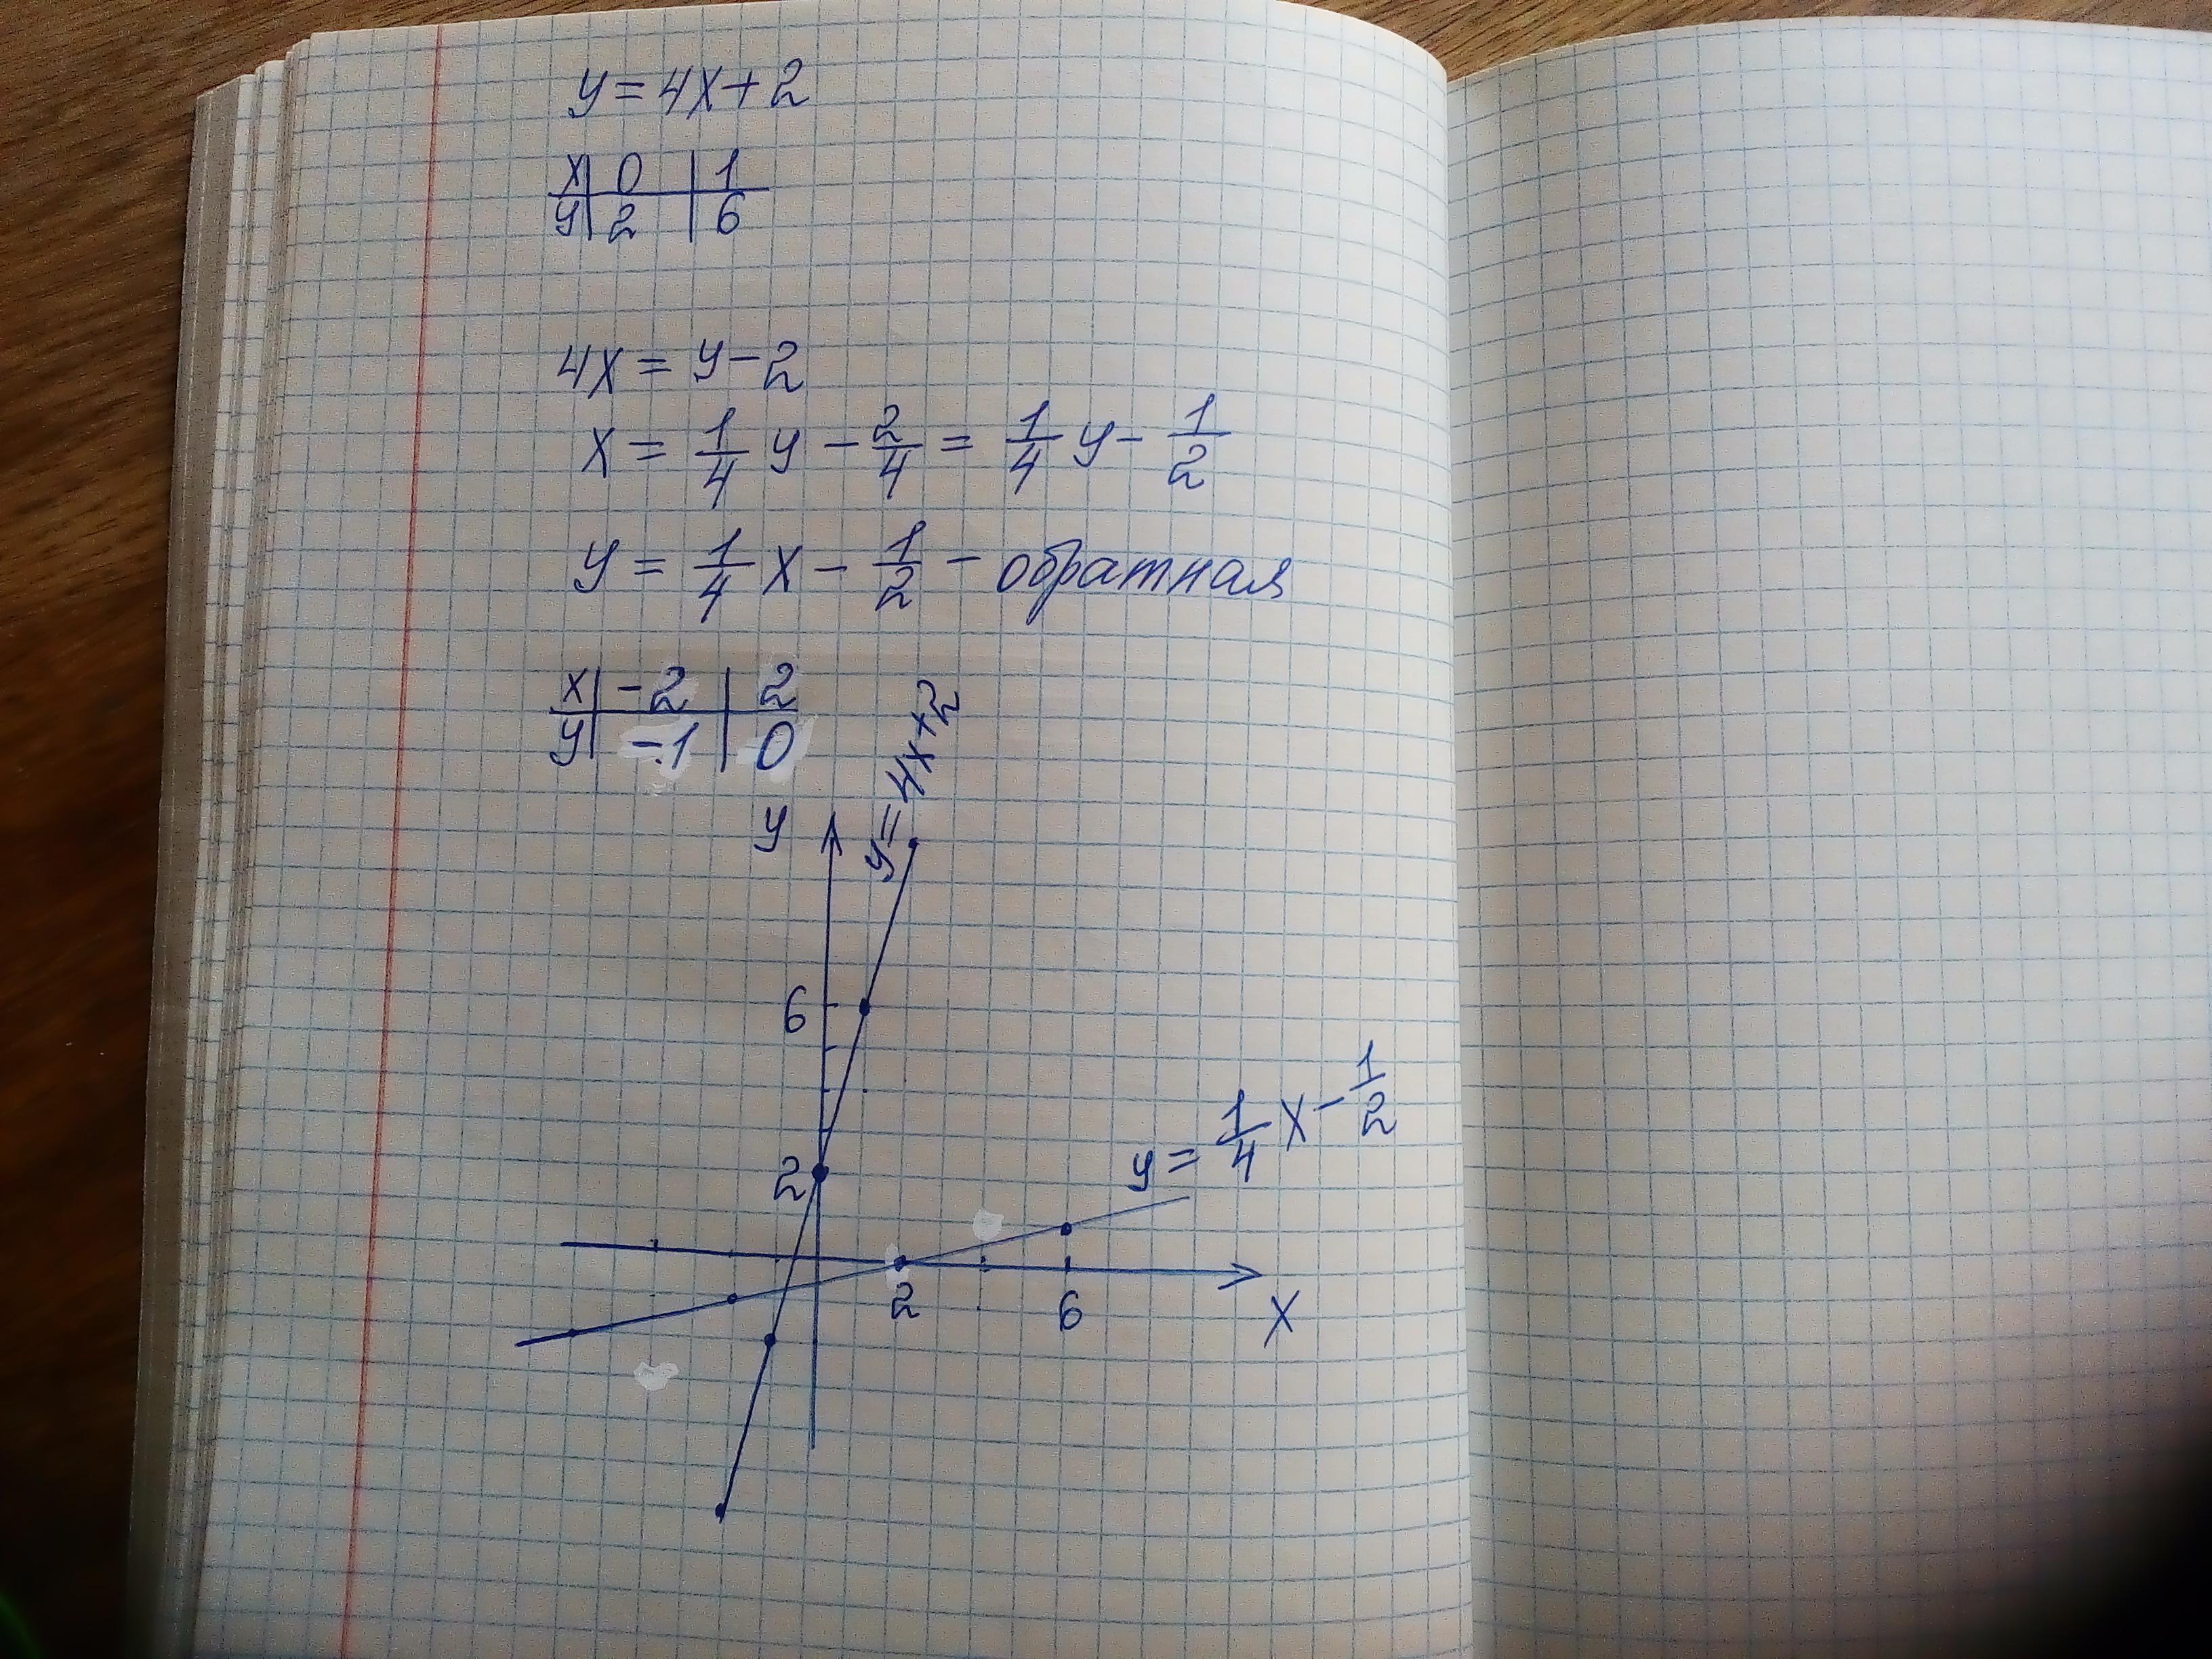 y = 4x + 2
x | 0 | 1
y | 2 | 6
4x = y - 2
x = 1/4 y - 2/4 = 1/4 y - 1/2
y = 1/4 x - 1/2 - обратная
x | -2 | 2
y | -1 | 0
y
y = 4x + 2
6
y = 1/4 x - 1/2
2
2
6
x